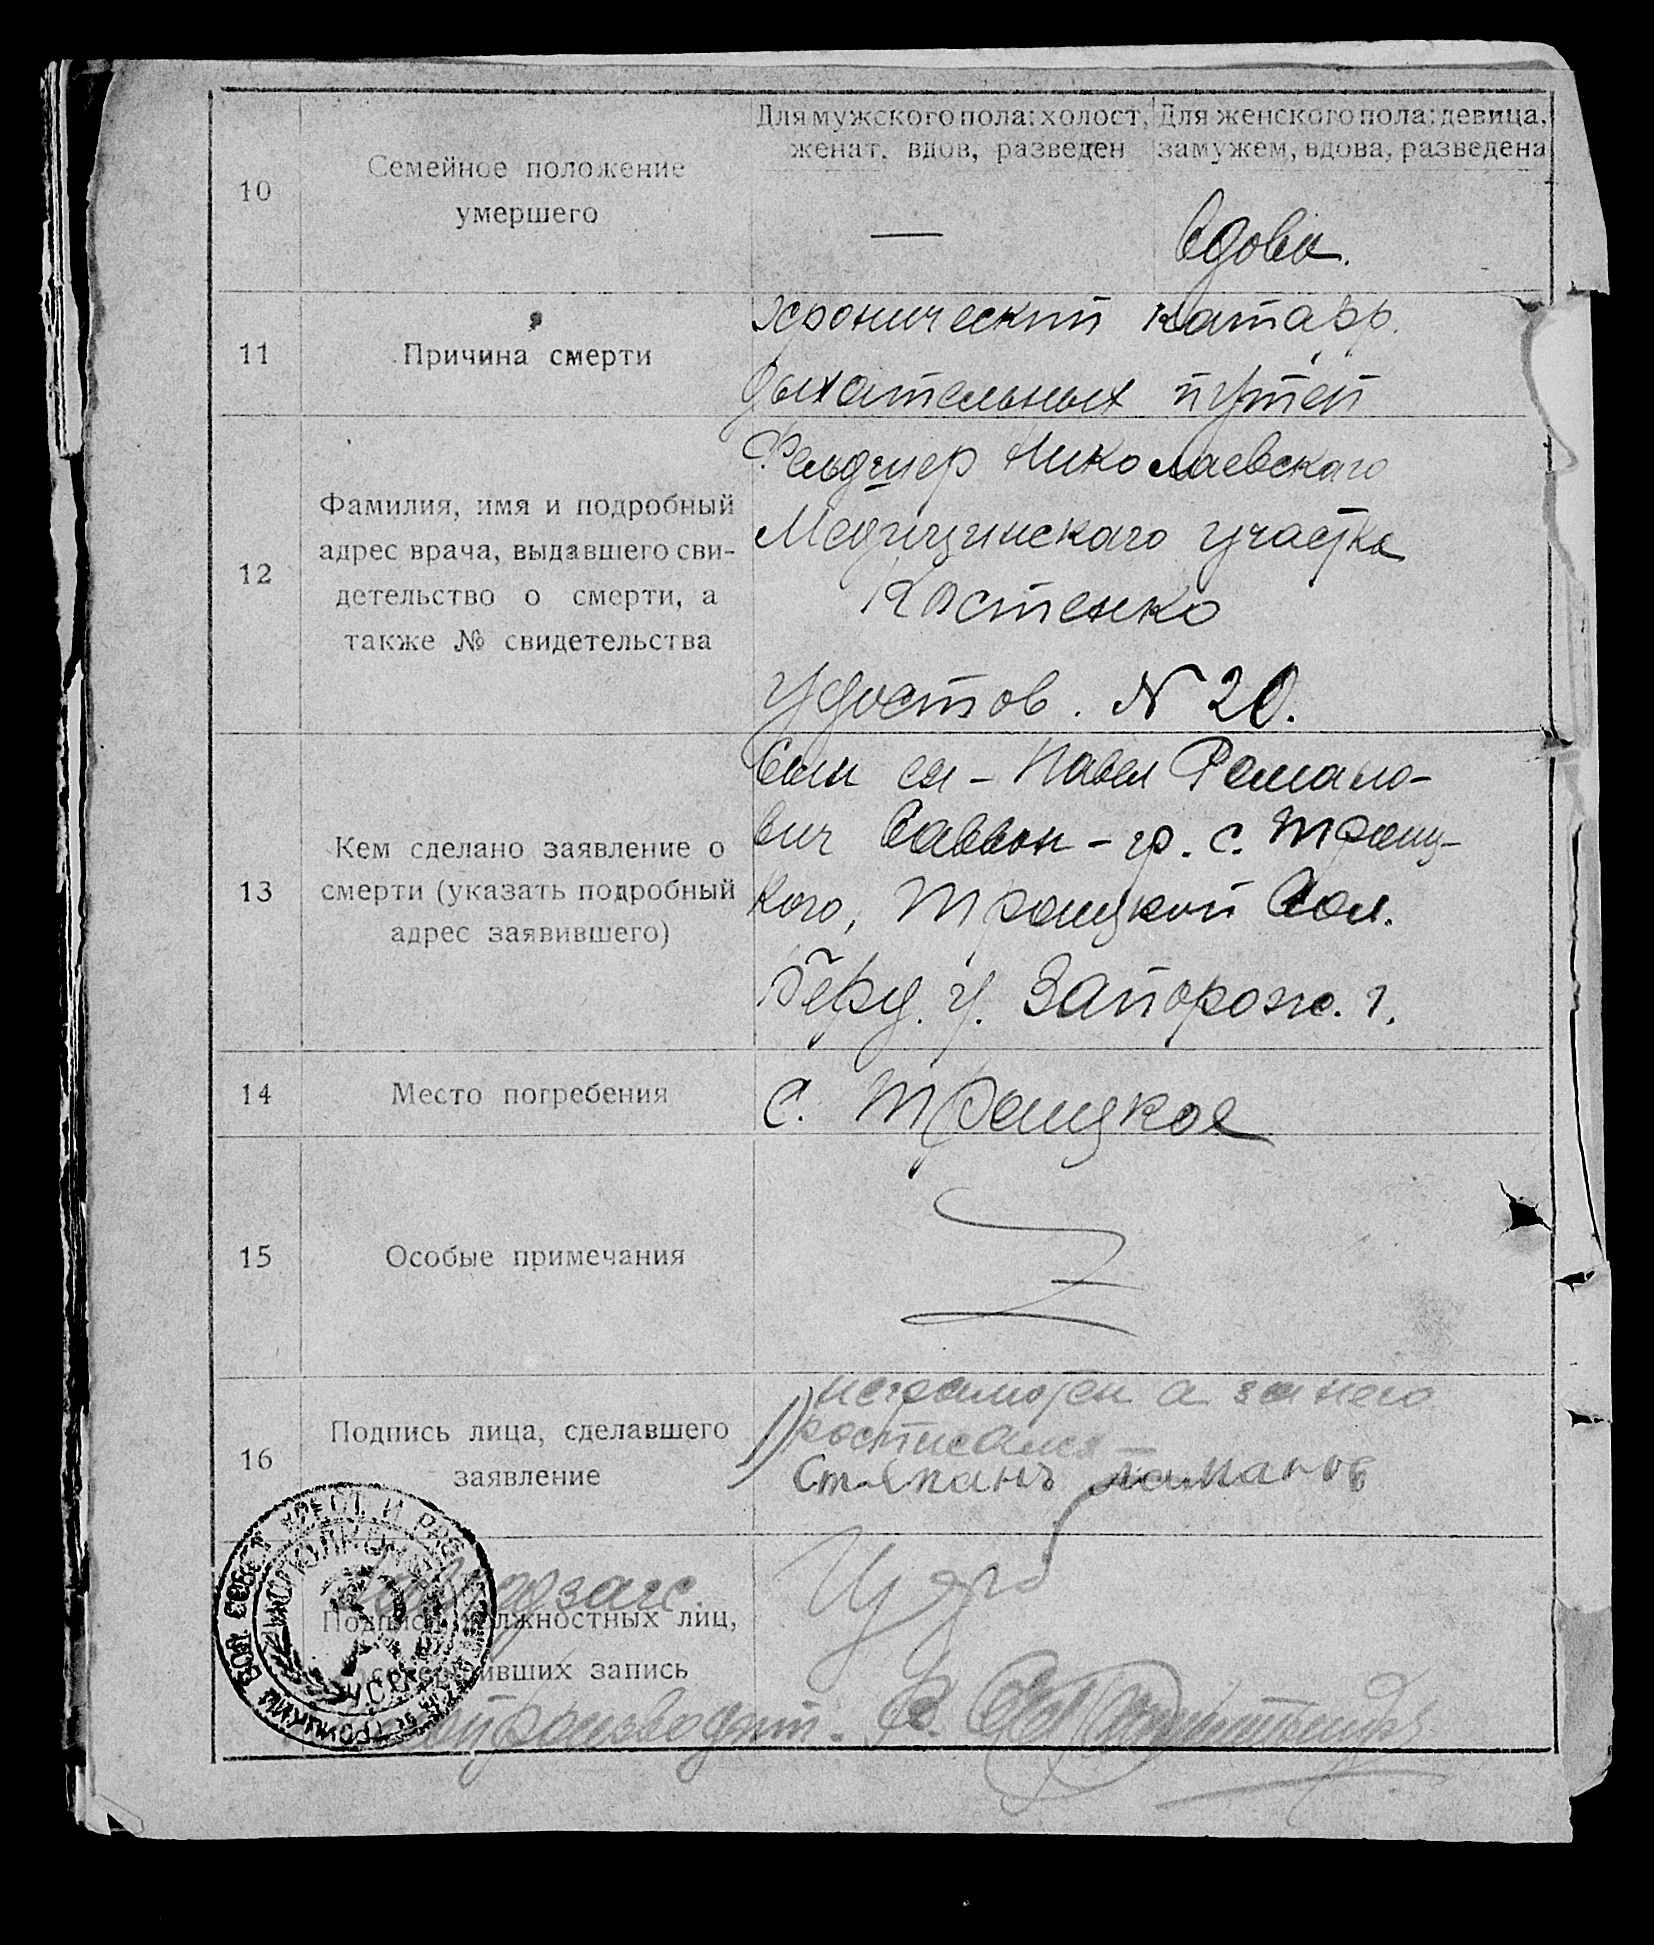 Для мужского пола: холост, женат, вдов, разведен
Для женского пола: девица, замужем, вдова, разведена
10
Семейное положение
умершего
—
вдова.
11
Причина смерти
хронический катарр.
дыхательных путей
12
Фамилия, имя и подробный
адрес врача, выдавшего сви-
детельство о смерти, а
также № свидетельства
Фельдшер Николаевскаго
Медицинскаго участка
Костенко
Удостов. N 20.
13
Кем сделано заявление о
смерти (указать подробный
адрес заявившего)
Сын ея – Павел Романо-
вич Саввон – гр. с. Троиц-
кого, Троицкой Вол.
Берд. у. Запорож. г.
14
Место погребения
с. Троицкое
15
Особые примечания
16
Подпись лица, сделавшего
заявление
неграмотен а за него
росписался –
Степанъ
Подписи должностных лиц,
совершивших запись